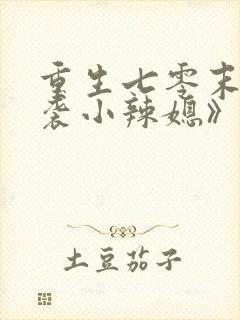 重生七零末
袭小辣媳》
土豆茄子